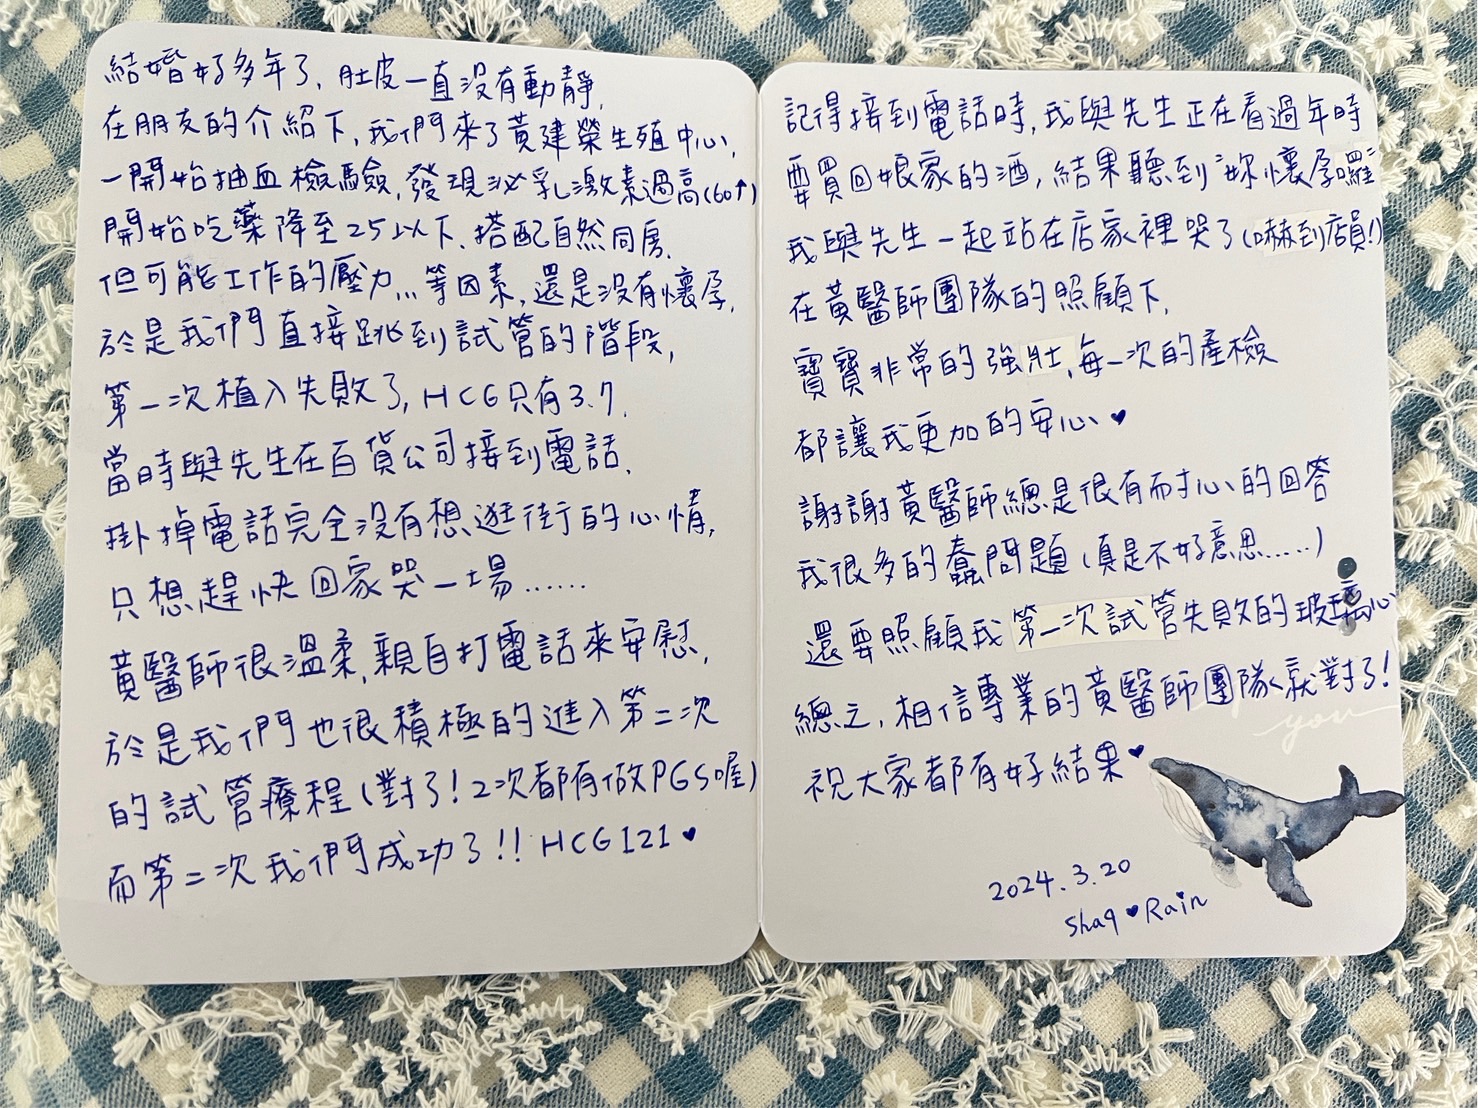 結婚好多年了,肚皮一直沒有動靜,
在朋友的介紹下,我們來了黃建榮生殖中心,
一開始抽血檢驗,發現泌乳激素過高(60↑)
開始吃藥降至25以下、搭配自然同房,
但可能工作的壓力...等因素,還是沒有懷孕,
於是我們直接跳到試管的階段,
第一次植入失敗了,HCG只有3.7,
當時與先生在百貨公司接到電話,
掛掉電話完全沒有想逛街的心情,
只想趕快回家哭一場......
黃醫師很溫柔,親自打電話來安慰,
於是我們也很積極的進入第二次
的試管療程(對了!2次都有做PGS喔)
而第二次我們成功了!! HCG 121♥
記得接到電話時,我與先生正在看過年時
要買回娘家的酒,結果聽到"妳懷孕囉"
我與先生一起站在店家裡哭了(嚇到店員!)
在黃醫師團隊的照顧下,
寶寶非常的強壯,每一次的產檢
都讓我更加的安心♥
謝謝黃醫師總是很有耐心的回答
我很多的蠢問題(真是不好意思.....)
還要照顧我第一次試管失敗的玻璃心
總之,相信專業的黃醫師團隊就對了!
you
祝大家都有好結果♥
2024.3.20
Shaq♥Rain